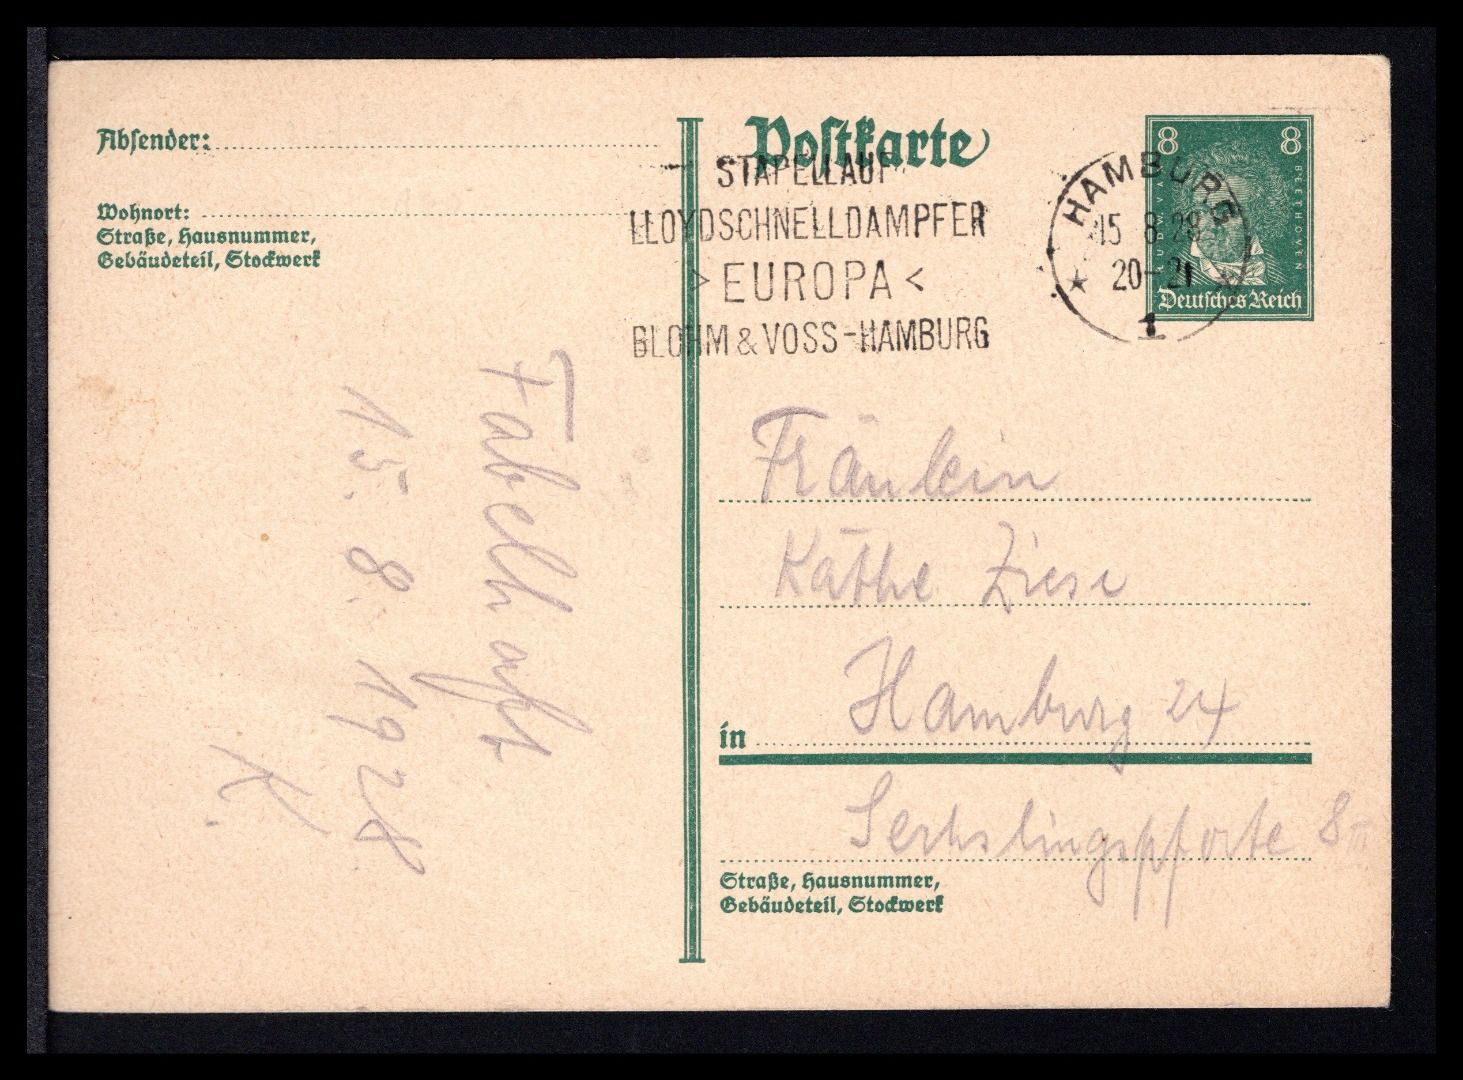 Absender:
Wohnort:
Straße, Hausnummer,
Gebäudeteil, Stockwerk
Fabelhaft
15. 8. 1928
K.
Postkarte
STAPELLAUF
LLOYDSCHNELLDAMPFER
> EUROPA <
BLOHM & VOSS-HAMBURG
HAMBURG
15 8 28
20-21
1
8 8
BEETHOVEN
Deutsches Reich
Fräulein
Käthe Ziese
in Hamburg 24
Sechslingspforte 8 III
Straße, Hausnummer,
Gebäudeteil, Stockwerk